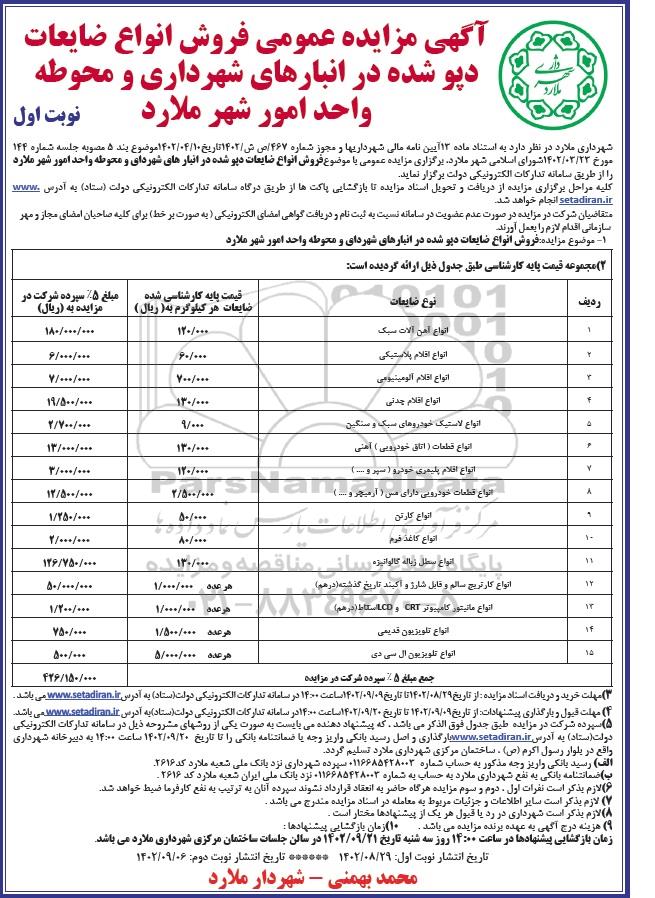 آگهی مزایده عمومی فروش انواع ضایعات
دپو شده در انبارهای شهرداری و محوطه
واحد امور شهر ملارد
نوبت اول
شهرداری ملارد
شهرداری ملارد در نظر دارد به استناد ماده ۱۳آیین نامه مالی شهرداریها و مجوز شماره ۴۶۷/ص ش/۱۴۰۲تاریخ۱۴۰۲/۰۴/۱۰موضوع بند ۵ مصوبه جلسه شماره ۱۴۴
مورخ ۱۴۰۲/۰۳/۲۳شورای اسلامی شهر ملارد، برگزاری مزایده عمومی با موضوع؛فروش انواع ضایعات دپو شده در انبار های شهردای و محوطه واحد امور شهر ملارد
را از طریق سامانه تدارکات الکترونیکی دولت برگزار نماید.
کلیه مراحل برگزاری مزایده از دریافت و تحویل اسناد مزایده تا بازگشایی پاکت ها از طریق درگاه سامانه تدارکات الکترونیکی دولت (ستاد) به آدرس www.
setadiran.ir انجام خواهد شد.
متقاضیان شرکت در مزایده در صورت عدم عضویت در سامانه نسبت به ثبت نام و دریافت گواهی امضای الکترونیکی ( به صورت بر خط) برای کلیه صاحبان امضای مجاز و مهر
سازمانی اقدام لازم را بعمل آورند.
۱- موضوع مزایده:فروش انواع ضایعات دپو شده در انبارهای شهردای و محوطه واحد امور شهر ملارد
۲)مجموعه قیمت پایه کارشناسی طبق جدول ذیل ارائه گردیده است:
ردیف نوع ضایعات قیمت پایه کارشناسی شده ضایعات هر کیلوگرم به( ریال ) مبلغ ۵٪ سپرده شرکت در مزایده به (ریال)
۱ انواع آهن آلات سبک ۱۲۰/۰۰۰ ۱۸۰/۰۰۰/۰۰۰
۲ انواع اقلام پلاستیکی ۶۰/۰۰۰ ۶/۰۰۰/۰۰۰
۳ انواع اقلام آلومینیومی ۷۰۰/۰۰۰ ۷/۰۰۰/۰۰۰
۴ انواع اقلام چدنی ۱۳۰/۰۰۰ ۱۹/۵۰۰/۰۰۰
۵ انواع لاستیک خودروهای سبک و سنگین ۹/۰۰۰ ۲/۷۰۰/۰۰۰
۶ انواع قطعات ( اتاق خودرویی ) آهنی ۱۳۰/۰۰۰ ۱۳/۰۰۰/۰۰۰
۷ انواع اقلام پلیمری خودرو ( سپر و .... ) ۱۲۰/۰۰۰ ۳/۰۰۰/۰۰۰
۸ انواع قطعات خودرویی دارای مس ( آرمیچر و .... ) ۲/۵۰۰/۰۰۰ ۱۲/۵۰۰/۰۰۰
۹ انواع کارتن ۵۰/۰۰۰ ۱/۲۵۰/۰۰۰
۱۰ انواع کاغذ فرم ۸۰/۰۰۰ ۲/۰۰۰/۰۰۰
۱۱ انواع سطل زباله گالوانیزه ۱۳۰/۰۰۰ ۱۲۶/۷۵۰/۰۰۰
۱۲ انواع کارتریج سالم و قابل شارژ و آکبند تاریخ گذشته(درهم) هرعدد ۱/۰۰۰/۰۰۰ ۵۰/۰۰۰/۰۰۰
۱۳ انواع مانیتور کامپیوتر CRT و LCDاسقاط(درهم) هرعدد ۱/۰۰۰/۰۰۰ ۱/۲۰۰/۰۰۰
۱۴ انواع تلویزیون قدیمی هرعدد ۱/۵۰۰/۰۰۰ ۷۵۰/۰۰۰
۱۵ انواع تلویزیون ال سی دی هرعدد ۵/۰۰۰/۰۰۰ ۵۰۰/۰۰۰
جمع مبلغ ۵ ٪ سپرده شرکت در مزایده ۴۲۶/۱۵۰/۰۰۰
۳)مهلت خرید و دریافت اسناد مزایده : از تاریخ۱۴۰۲/۰۸/۲۹تا تاریخ۱۴۰۲/۰۹/۰۹ساعت ۱۴:۰۰ در سامانه تدارکات الکترونیکی دولت(ستاد)به آدرسwww.setadiran.ir می باشد .
۴) مهلت قبول و بارگذاری پیشنهادات: از تاریخ۱۴۰۲/۰۹/۰۹ تا تاریخ ۱۴۰۲/۰۹/۲۰ ساعت۱۴:۰۰در سامانه تدارکات الکترونیکی دولت(ستاد)به آدرس www.setadiran.irمی باشد.
۵)سپرده شرکت در مزایده طبق جدول فوق الذکر می باشد . که پیشنهاد دهنده می بایست به صورت یکی از روشهای مشروحه ذیل در سامانه تدارکات الکترونیکی
دولت(ستاد) به آدرسwww.setadiran.irبارگذاری و اصل رسید بانکی واریز وجه یا ضمانتنامه بانکی را تا تاریخ ۱۴۰۲/۰۹/۲۰ ساعت ۱۴:۰۰ به دبیرخانه شهرداری
واقع در بلوار رسول اکرم (ص) ، ساختمان مرکزی شهرداری ملارد تسلیم گردد.
الف) رسید بانکی واریز وجه مذکور به حساب شماره ۰۱۱۶۶۸۵۴۲۸۰۰۳ سپرده شهرداری نزد بانک ملی شعبه ملارد کد۲۶۱۶.
ب)ضمانتنامه بانکی به نفع شهرداری ملارد به حساب به شماره ۰۱۱۶۶۸۵۴۲۸۰۰۳ نزد بانک ملی ایران شعبه ملارد کد ۲۶۱۶ .
۶)لازم بذکر است نفرات اول ، دوم و سوم مزایده هرگاه حاضر به انعقاد قرارداد نشوند سپرده آنان به ترتیب به نفع کارفرما ضبط خواهد شد.
۷) لازم بذکر است سایر اطلاعات و جزئیات مربوط به معامله در اسناد مزایده مندرج می باشد .
۸)لازم بذکر است شهرداری در رد یا قبول هر یک از پیشنهادها مختار است .
۹) هزینه درج آگهی به عهده برنده مزایده می باشد . ۱۰)زمان بازگشایی پیشنهادها :
زمان بازگشایی پیشنهادها در ساعت ۱۴:۰۰ روز سه شنبه تاریخ ۱۴۰۲/۰۹/۲۱ در سالن جلسات ساختمان مرکزی شهرداری ملارد می باشد.
تاریخ انتشار نوبت اول: ۱۴۰۲/۰۸/۲۹ ****** تاریخ انتشار نوبت دوم: ۱۴۰۲/۰۹/۰۶
محمد بهمنی – شهردار ملارد
ParsNamadData
مرکز فرآوری اطلاعات پارس نماد داده ها
پایگاه اطلاع رسانی مناقصه و مزایده